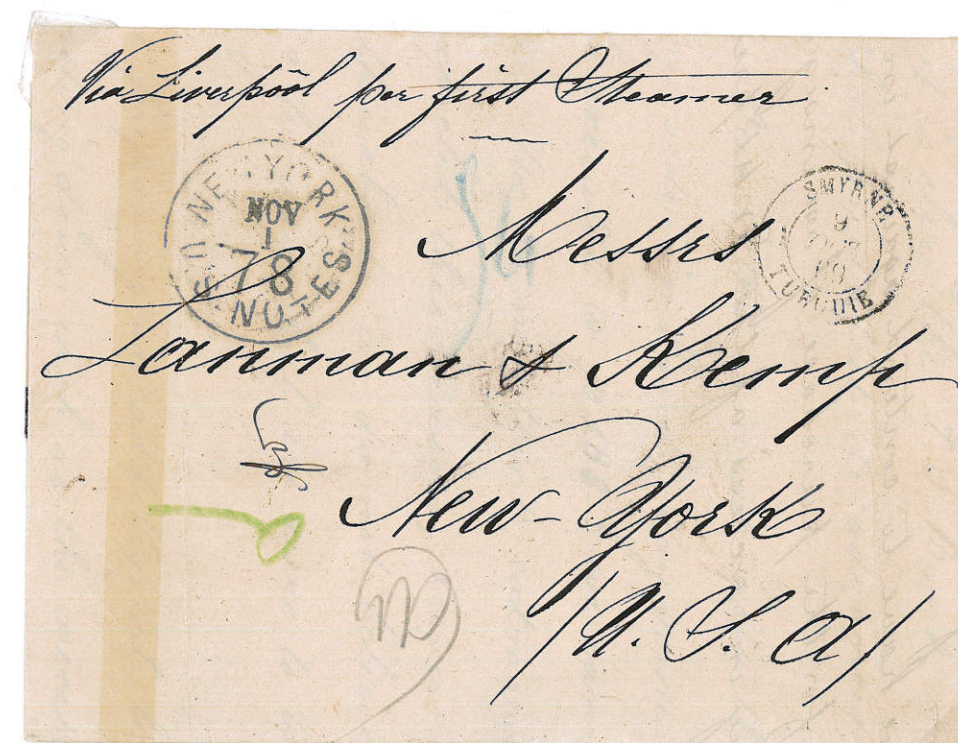 Via Liverpool per first Steamer
NEW YORK
NOV
1
78
U.S. NOTES
SMYRNE
9
69
TURQUIE
Messrs
Lanman & Kemp
New-York
/U. S. A/